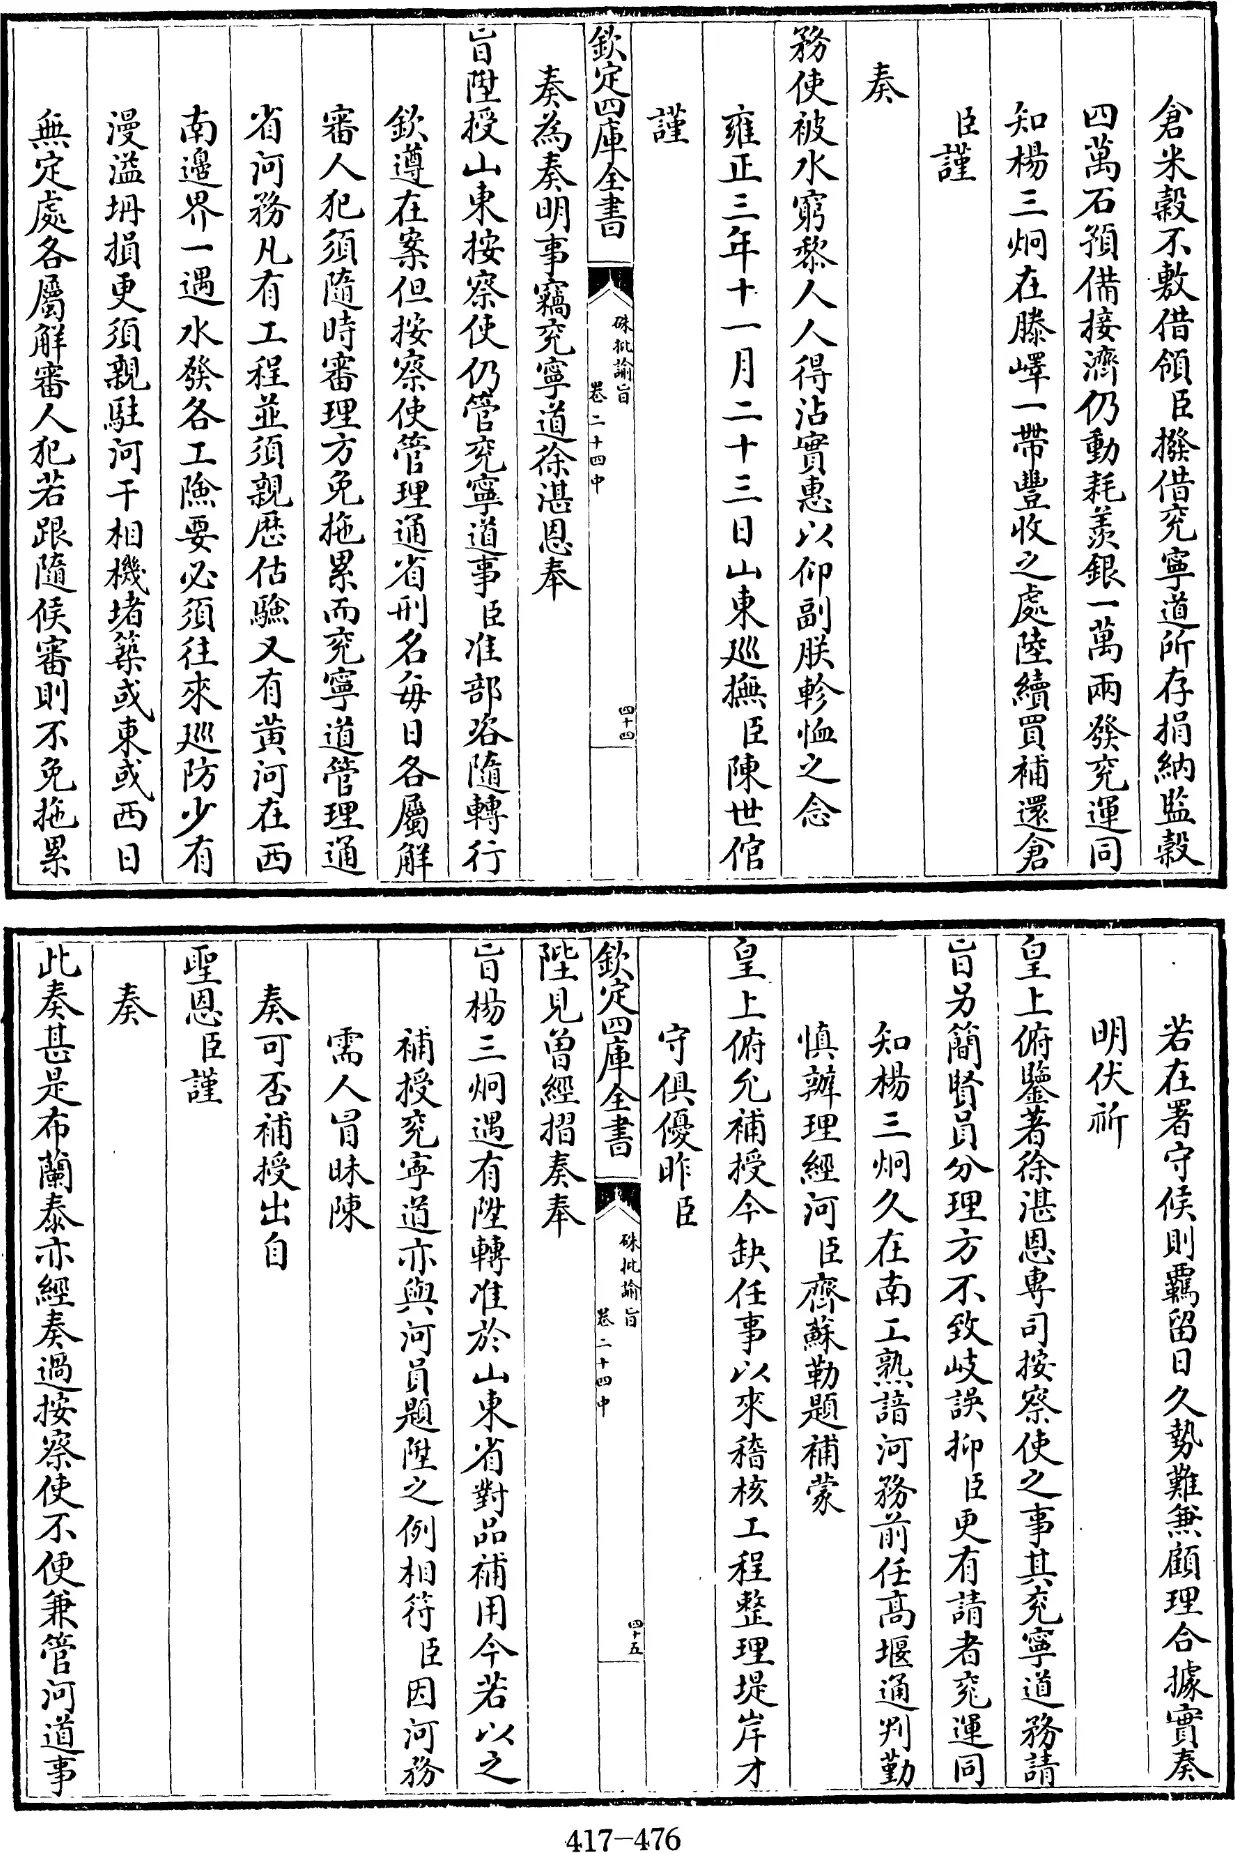 倉米穀不敷借領臣撥借兖寧道所存捐納監穀
四萬石預備接濟仍動耗羨銀一萬兩發兖運同
知楊三炯在滕嶧一帶豐收之處陸續買補還倉
臣謹
奏
務使被水窮黎人人得沾實惠以仰副朕軫恤之念
雍正三年十一月二十三日山東巡撫臣陳世倌
謹
欽定四庫全書
硃批諭旨
卷二十四中
四十四
奏為奏明事竊兖寧道徐湛恩奉
旨陞授山東按察使仍管兖寧道事臣准部咨隨轉行
欽遵在案但按察使管理通省刑名每日各屬解
審人犯須隨時審理方免拖累而兖寧道管理通
省河務凡有工程並須親歷估驗又有黄河在西
南邊界一遇水發各工險要必須往來廵防少有
漫溢坍損更須親駐河干相機堵築或東或西日
無定處各屬解審人犯若跟隨候審則不免拖累
若在署守候則羈留日久勢難兼顧理合據實奏
明伏祈
皇上俯鑒著徐湛恩専司按察使之事其兖寧道務請
旨另簡賢員分理方不致歧誤抑臣更有請者兖運同
知楊三炯久在南工熟諳河務前任高堰通判勤
慎辦理經河臣齊蘇勒題補蒙
皇上俯允補授今缺任事以來稽核工程整理堤岸才
守俱優昨臣
欽定四庫全書
硃批諭旨
卷二十四中
四十五
陛見曾經摺奏奉
旨楊三炯遇有陞轉准於山東省對品補用今若以之
補授兖寧道亦與河員題陞之例相符臣因河務
需人冒昧陳
奏可否補授出自
聖恩臣謹
奏
此奏甚是布蘭泰亦經奏過按察使不便兼管河道事
417-476